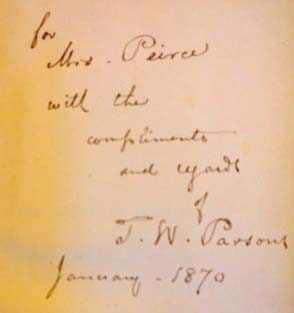 for
Mrs. Peirce
with the
compliments
and regards
of
T. W. Parsons
January - 1870